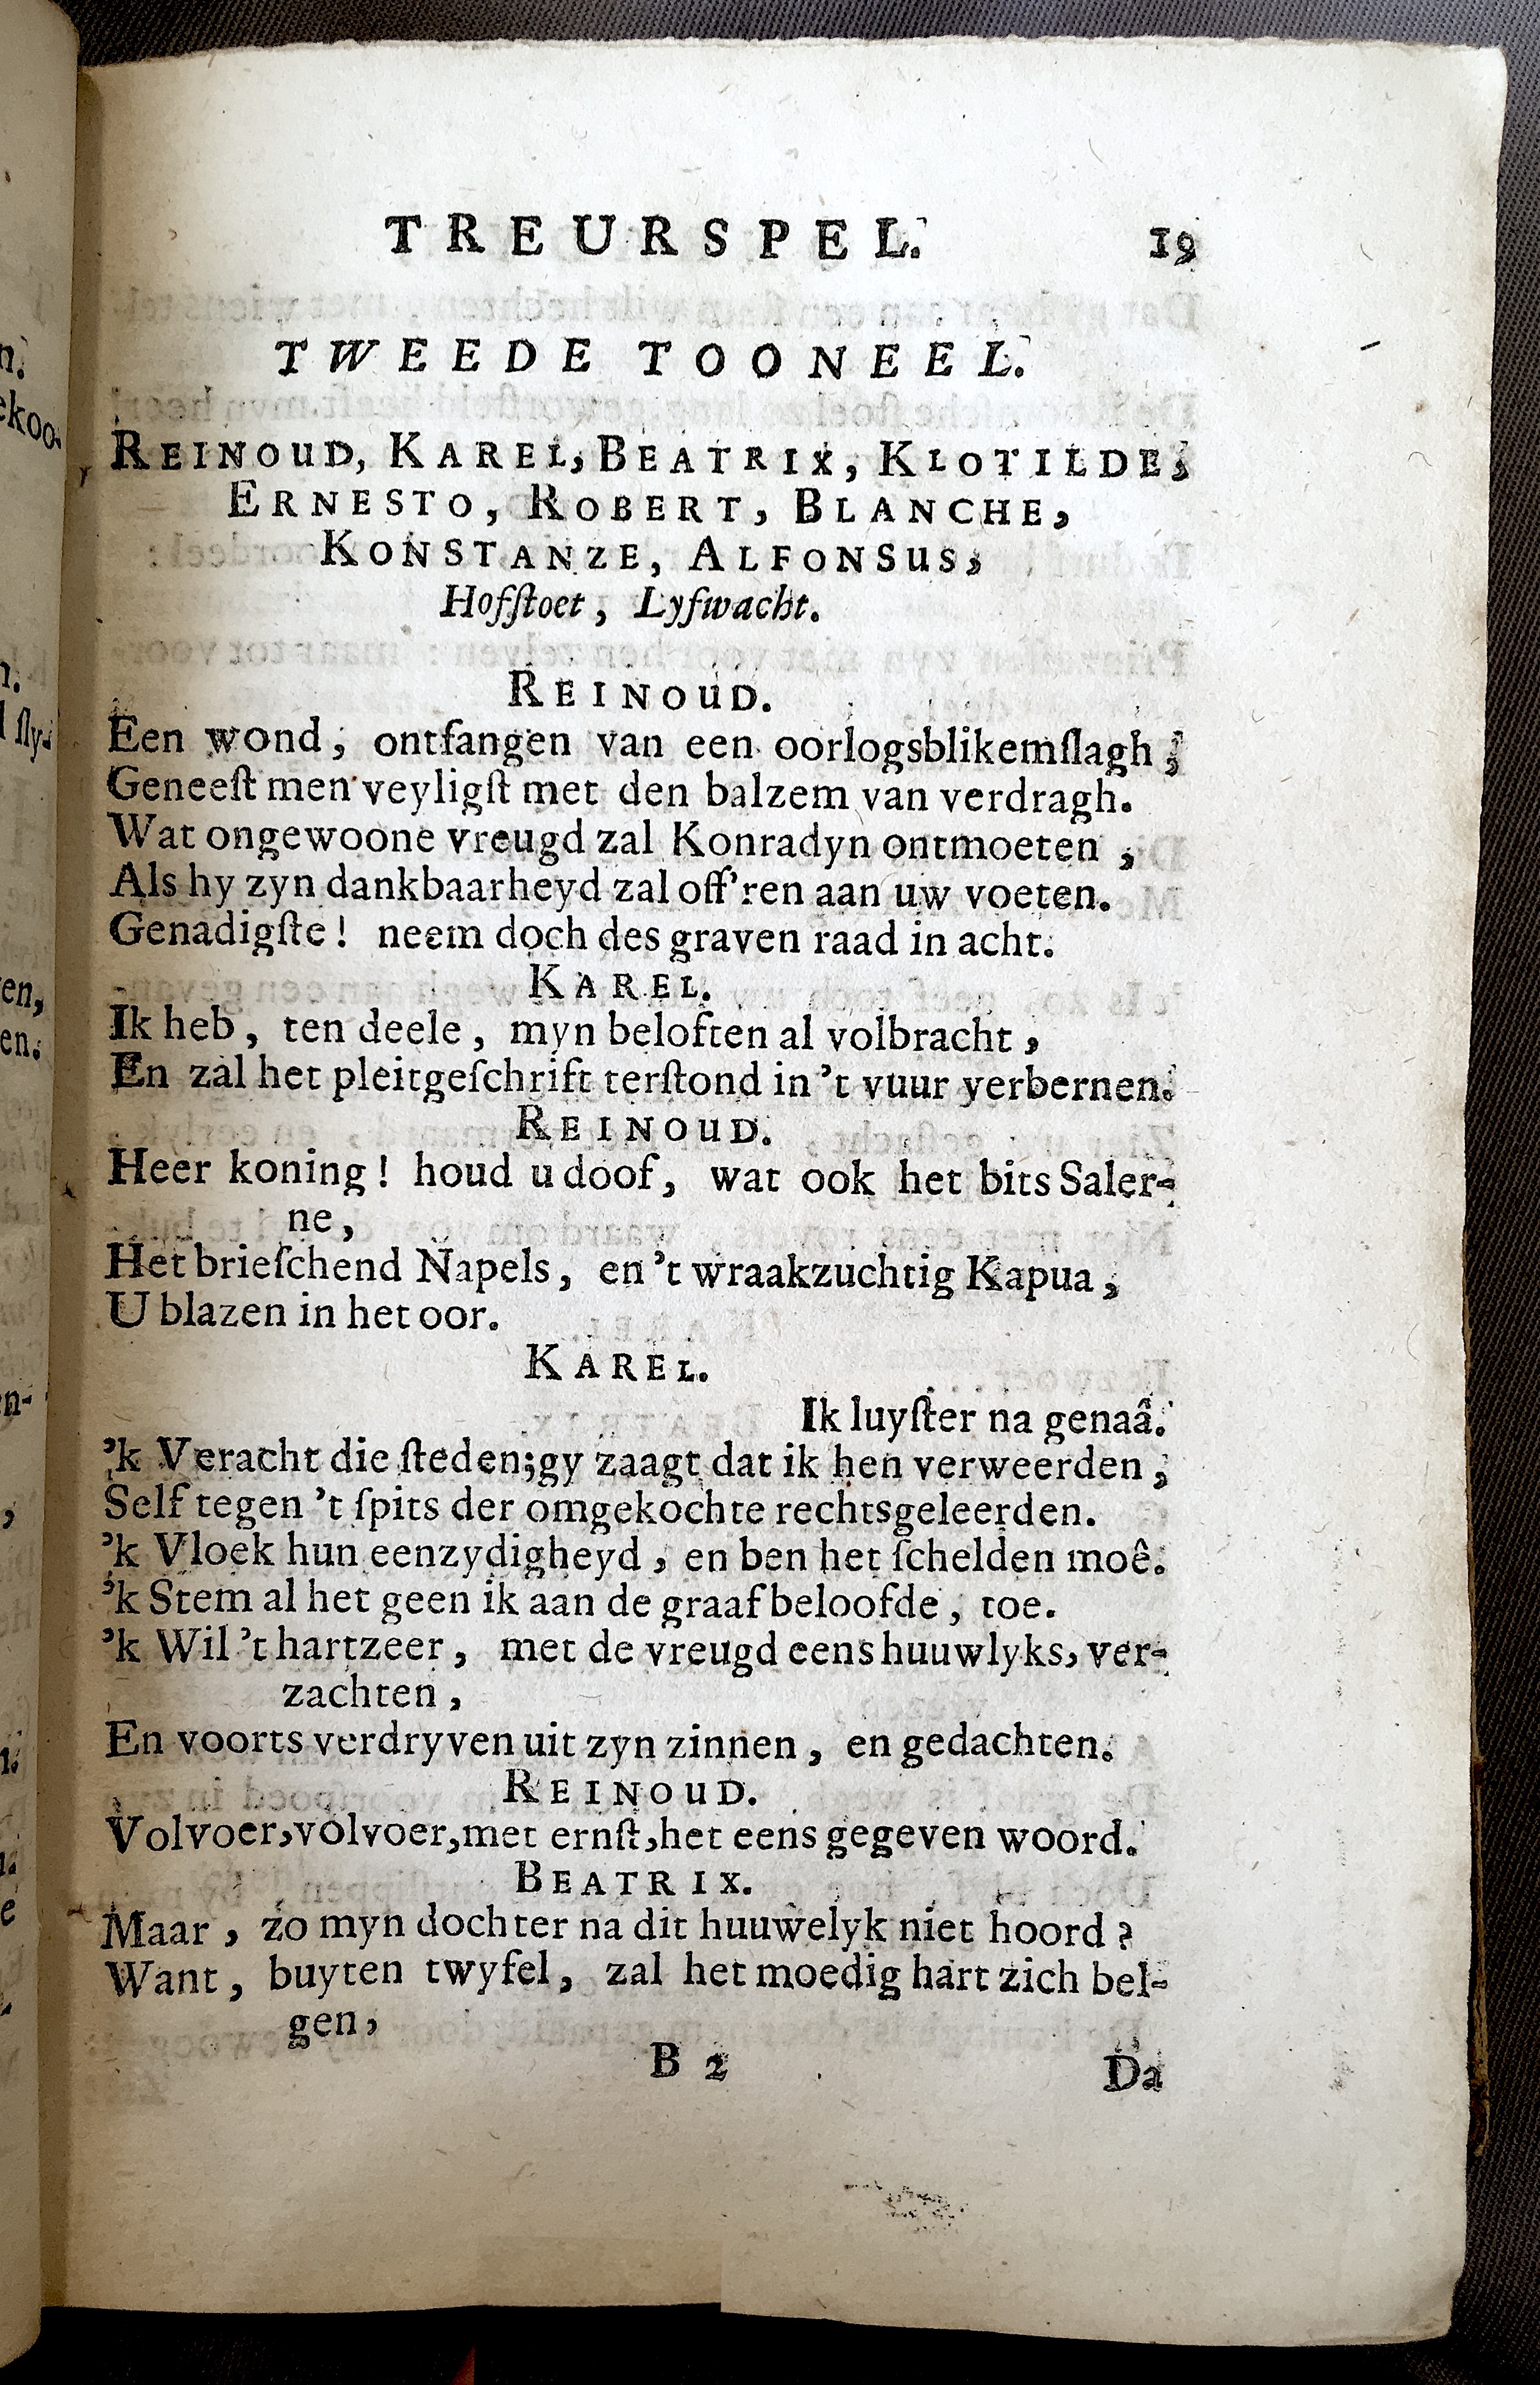 TREURSPEL. 19
TWEEDE TOONEEL.
REINOUD, KAREL, BEATRIX, KLOTILDE,
ERNESTO, ROBERT, BLANCHE,
KONSTANZE, ALFONSUS,
Hofſtoet, Lyfwacht.
REINOUD.
Een wond, ontfangen van een oorlogsblikemſlagh,
Geneeſt men veyligſt met den balzem van verdragh.
Wat ongewoone vreugd zal Konradyn ontmoeten,
Als hy zyn dankbaarheyd zal off'ren aan uw voeten.
Genadigſte! neem doch des graven raad in acht.
KAREL.
Ik heb, ten deele, myn beloften al volbracht,
En zal het pleitgeſchrift terſtond in 't vuur verbernen.
REINOUD.
Heer koning! houd u doof, wat ook het bits Saler-
ne,
Het brieſchend Napels, en 't wraakzuchtig Kapua,
U blazen in het oor.
KAREL.
Ik luyſter na genaâ.
'k Veracht die ſteden; gy zaagt dat ik hen verweerden,
Self tegen 't ſpits der omgekochte rechtsgeleerden.
'k Vloek hun eenzydigheyd, en ben het ſchelden moê.
'k Stem al het geen ik aan de graaf beloofde, toe.
'k Wil 't hartzeer, met de vreugd eens huuwlyks, ver-
zachten,
En voorts verdryven uit zyn zinnen, en gedachten.
REINOUD.
Volvoer, volvoer, met ernſt, het eens gegeven woord.
BEATRIX.
Maar, zo myn dochter na dit huuwelyk niet hoord?
Want, buyten twyfel, zal het moedig hart zich bel-
gen,
B 2 Da